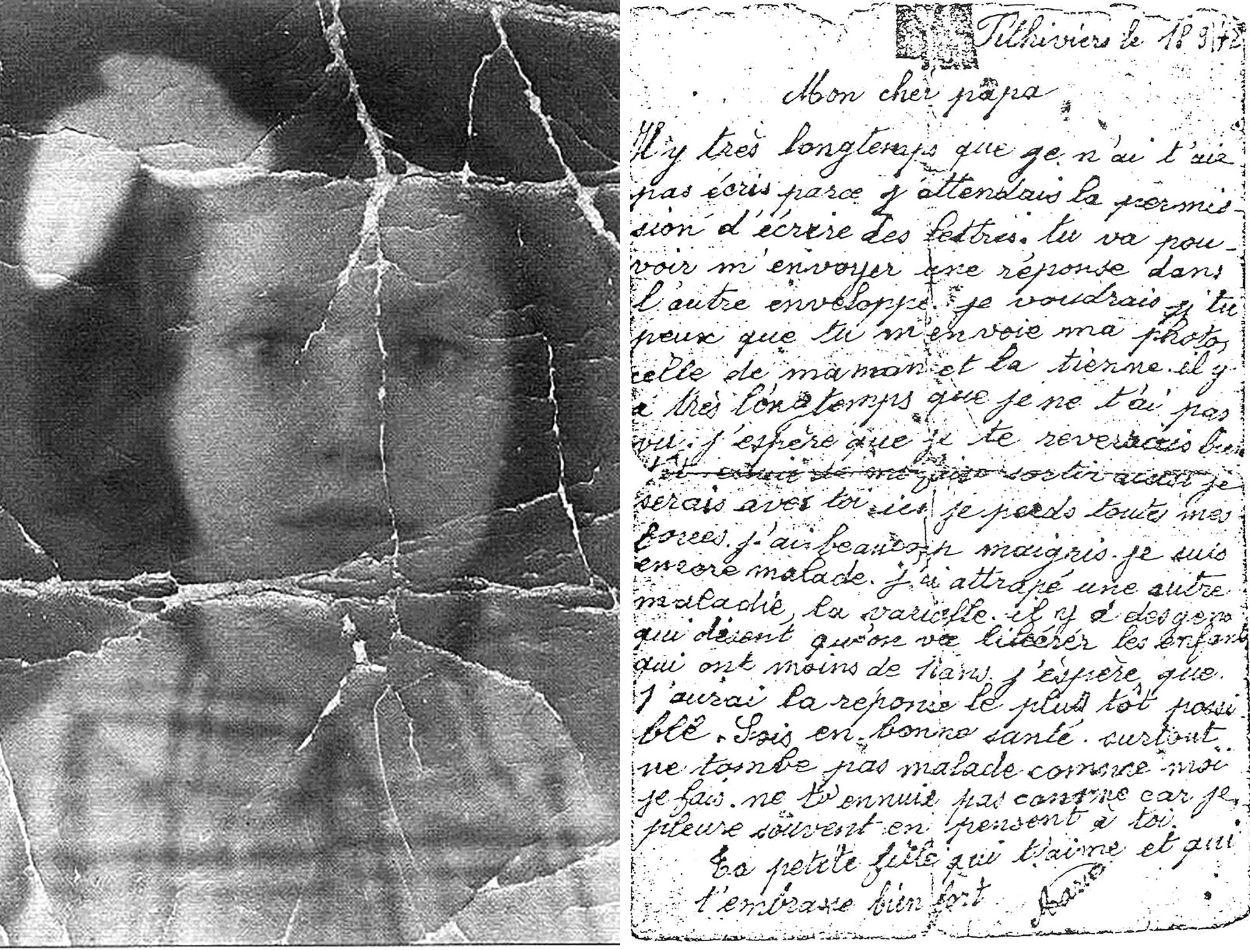 Pithiviers le 18 9/42
Mon cher papa
Il y très longtemps que ge n'ai t'ait
pas écris parce q attendais la permis-
sion d'écrire des lettres. tu va pou-
voir m'envoyer une réponse dans
l'autre enveloppe. je voudrais si tu
peux que tu m'envoie ma photo,
celle de maman et la tienne. il y
a très longtemps que je ne t'ai pas
vu. j'espère que je te reverrais bien
sortir je
serais avec toi. ici je perds toutes mes
forces. j'ai beaucoup maigris. je suis
encore malade. j'ai attrapé une autre
maladie, la varicelle. il y a des gens
qui disent qu'on va libérer les enfants
qui ont moins de ans. j'espère que
j'aurai la reponse le plus tôt possi
ble. Sois en bonne santé. surtout
ne tombe pas malade comme moi
je fais. ne t'ennuie pas comme car je
pleure souvent en pensent à toi.
Ta petite fille qui t'aime et qui
t'embrasse bien fort